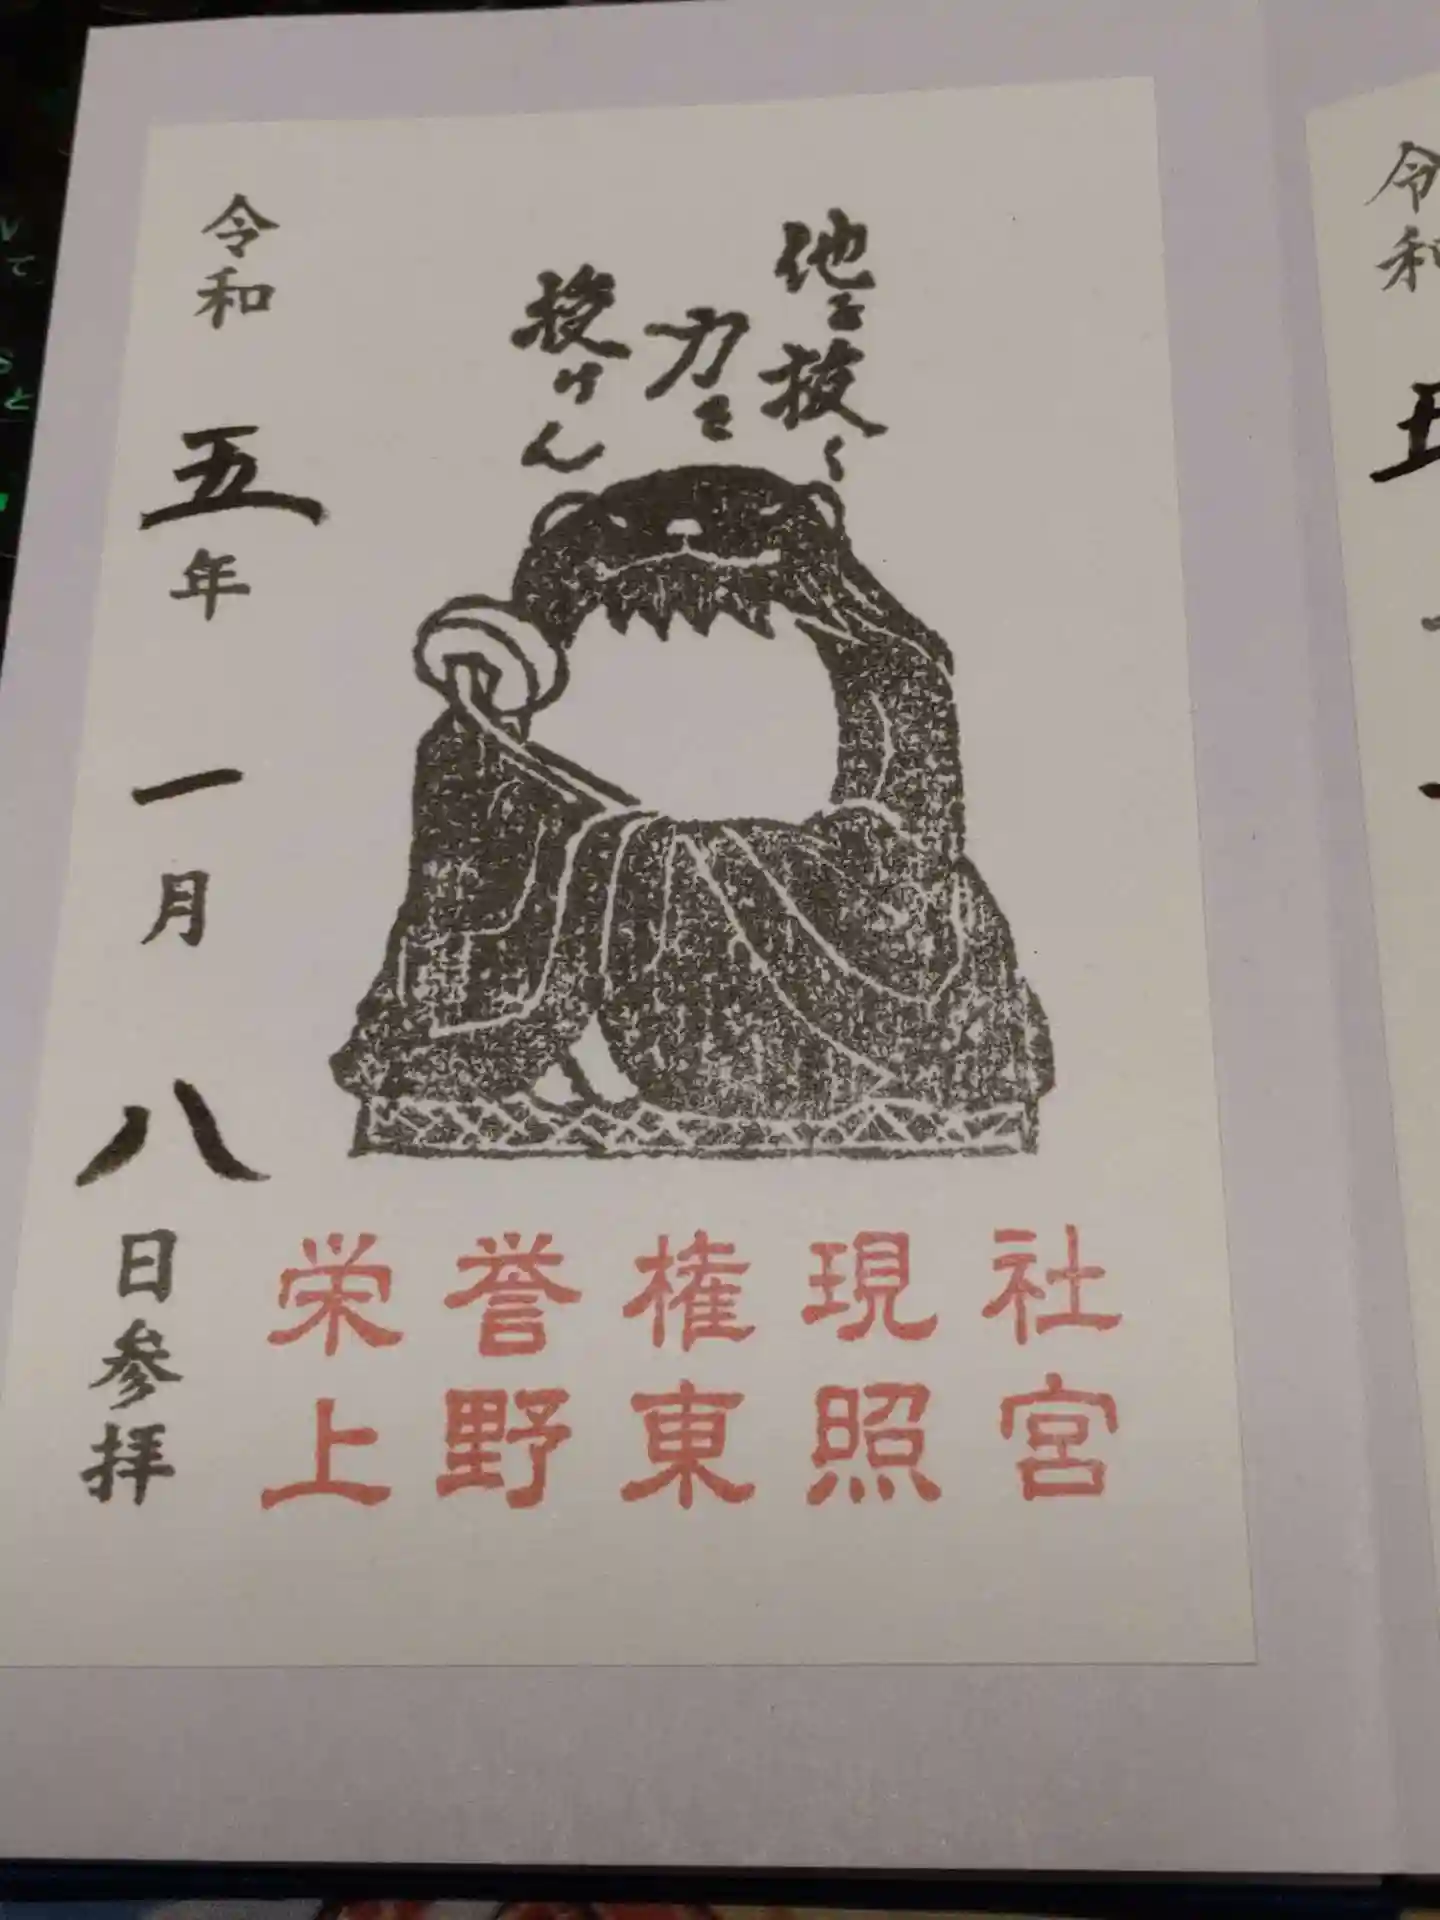 他を抜く
力を
授けん
令和 五年 一月 八日参拝
栄誉権現社
上野東照宮
令和